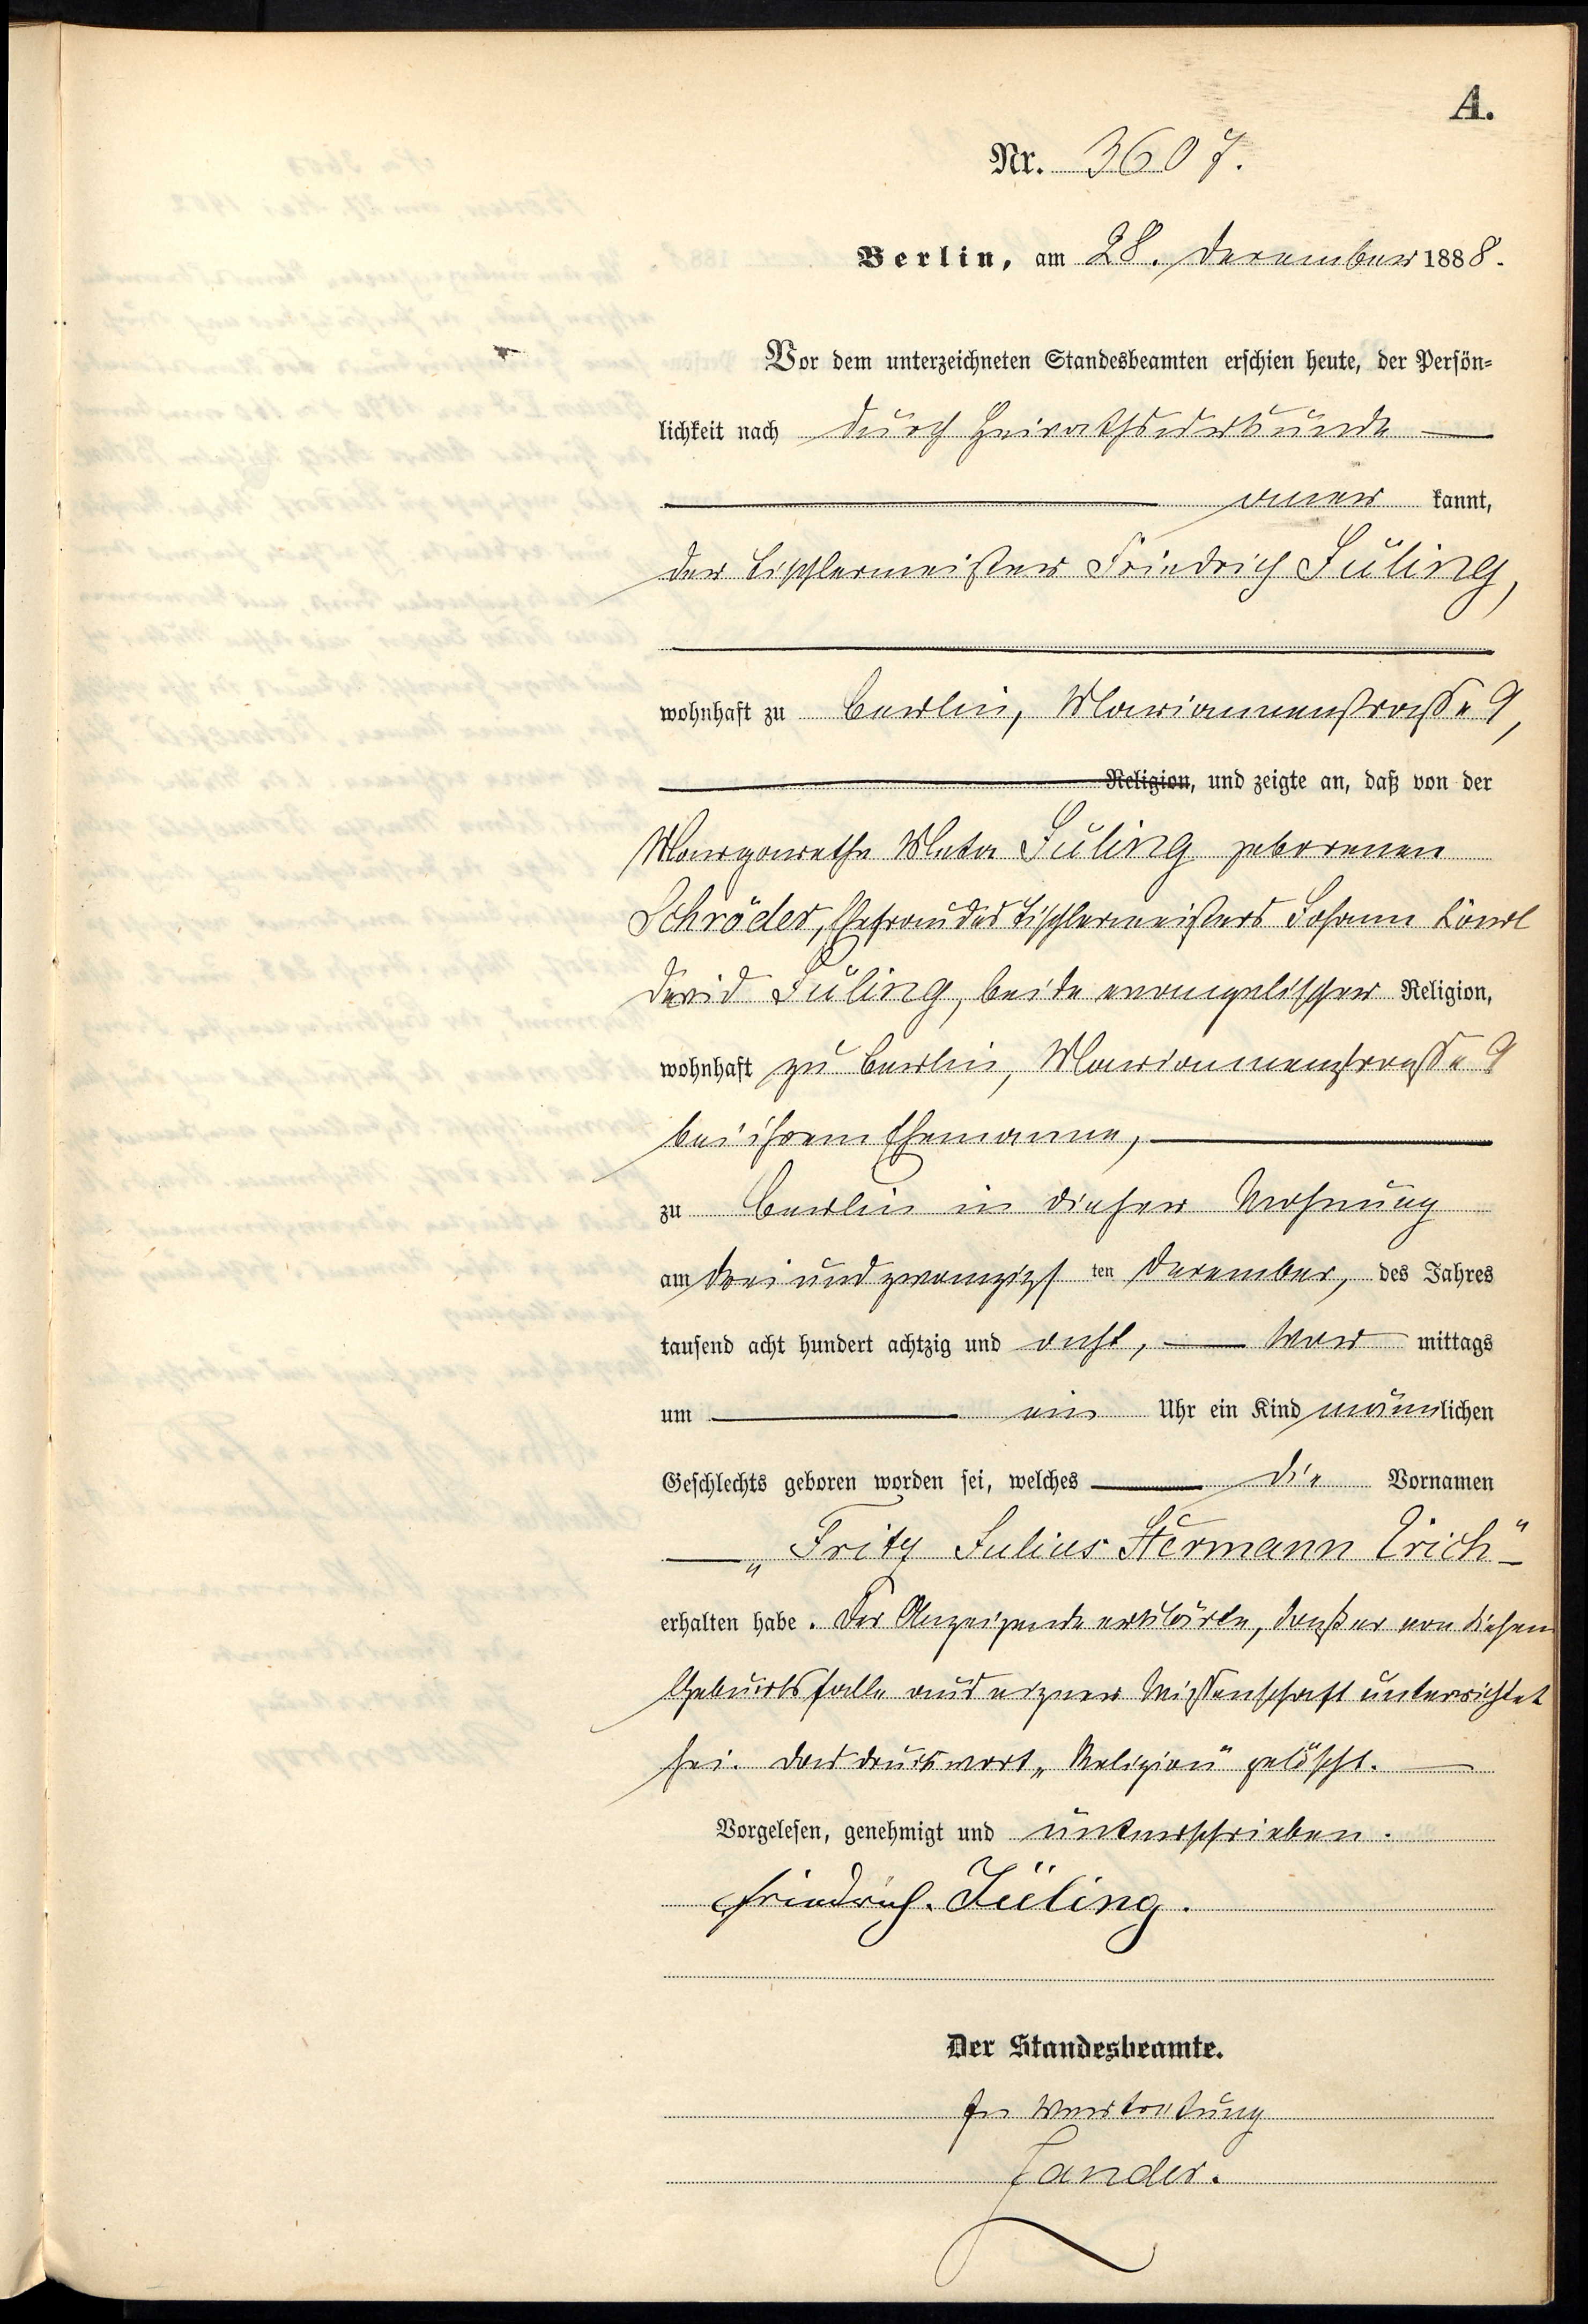 A.
Nr. 3607.
Berlin, am 28. Dezember 1888.
Vor dem unterzeichneten Standesbeamten erschien heute, der Persön=
lichkeit nach durch Heirathsurkunde
aner kannt,
der Tischlermeister Friedrich Jüling,
wohnhaft zu Berlin, Mariannenstraße 9,
Religion, und zeigte an, daß von der
Margarethe Meta Jüling geborenen
Schröder, Ehefrau des Tischlermeisters Johann Carl
David Jüling, beide evangelischer Religion,
wohnhaft zu Berlin, Mariannenstraße 9
bei ihrem Ehemanne,
zu Berlin in dieser Wohnung
am drei und zwanzigs ten Dezember, des Jahres
tausend acht hundert achtzig und acht, Vor mittags
um ein Uhr ein Kind männlichen
Geschlechts geboren worden sei, welches die Vornamen
„Fritz Julius Hermann Erich"
erhalten habe. Der Anzeigende erklärte, daß er von diesem
Geburtsfalle aus eigner Wissenschaft unterrichtet
sei. Das Druckwort „Religion" gelöscht.
Vorgelesen, genehmigt und unterschrieben.
Friedrich. Jüling.
Der Standesbeamte.
In Vertretung
Zander.